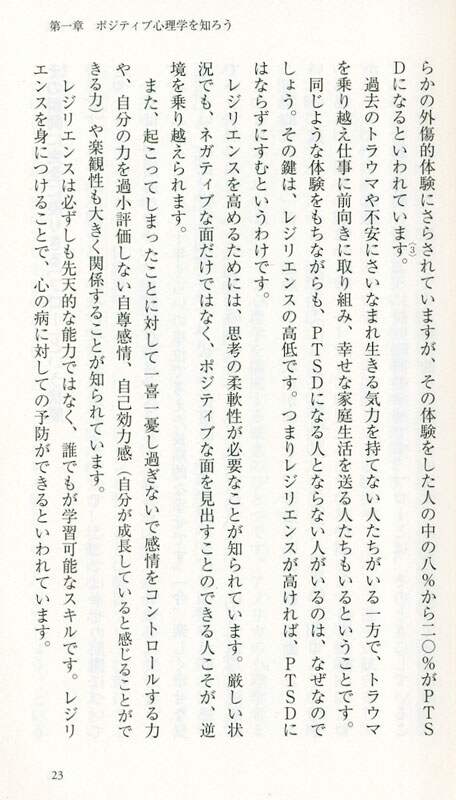 第一章 ポジティブ心理学を知ろう
らかの外傷的体験にさらされていますが、その体験をした人の中の八%から二〇%がPTS
Dになるといわれています。(3)
過去のトラウマや不安にさいなまれ生きる気力を持てない人たちがいる一方で、トラウマ
を乗り越え仕事に前向きに取り組み、幸せな家庭生活を送る人たちもいるということです。
同じような体験をもちながらも、PTSDになる人とならない人がいるのは、なぜなので
しょう。その鍵は、レジリエンスの高低です。つまりレジリエンスが高ければ、PTSDに
はならずにすむというわけです。
レジリエンスを高めるためには、思考の柔軟性が必要なことが知られています。厳しい状
況でも、ネガティブな面だけではなく、ポジティブな面を見出すことのできる人こそが、逆
境を乗り越えられます。
また、起こってしまったことに対して一喜一憂し過ぎないで感情をコントロールする力
や、自分の力を過小評価しない自尊感情、自己効力感(自分が成長していると感じることがで
きる力)や楽観性も大きく関係することが知られています。
レジリエンスは必ずしも先天的な能力ではなく、誰でもが学習可能なスキルです。レジリ
エンスを身につけることで、心の病に対しての予防ができるといわれています。
23